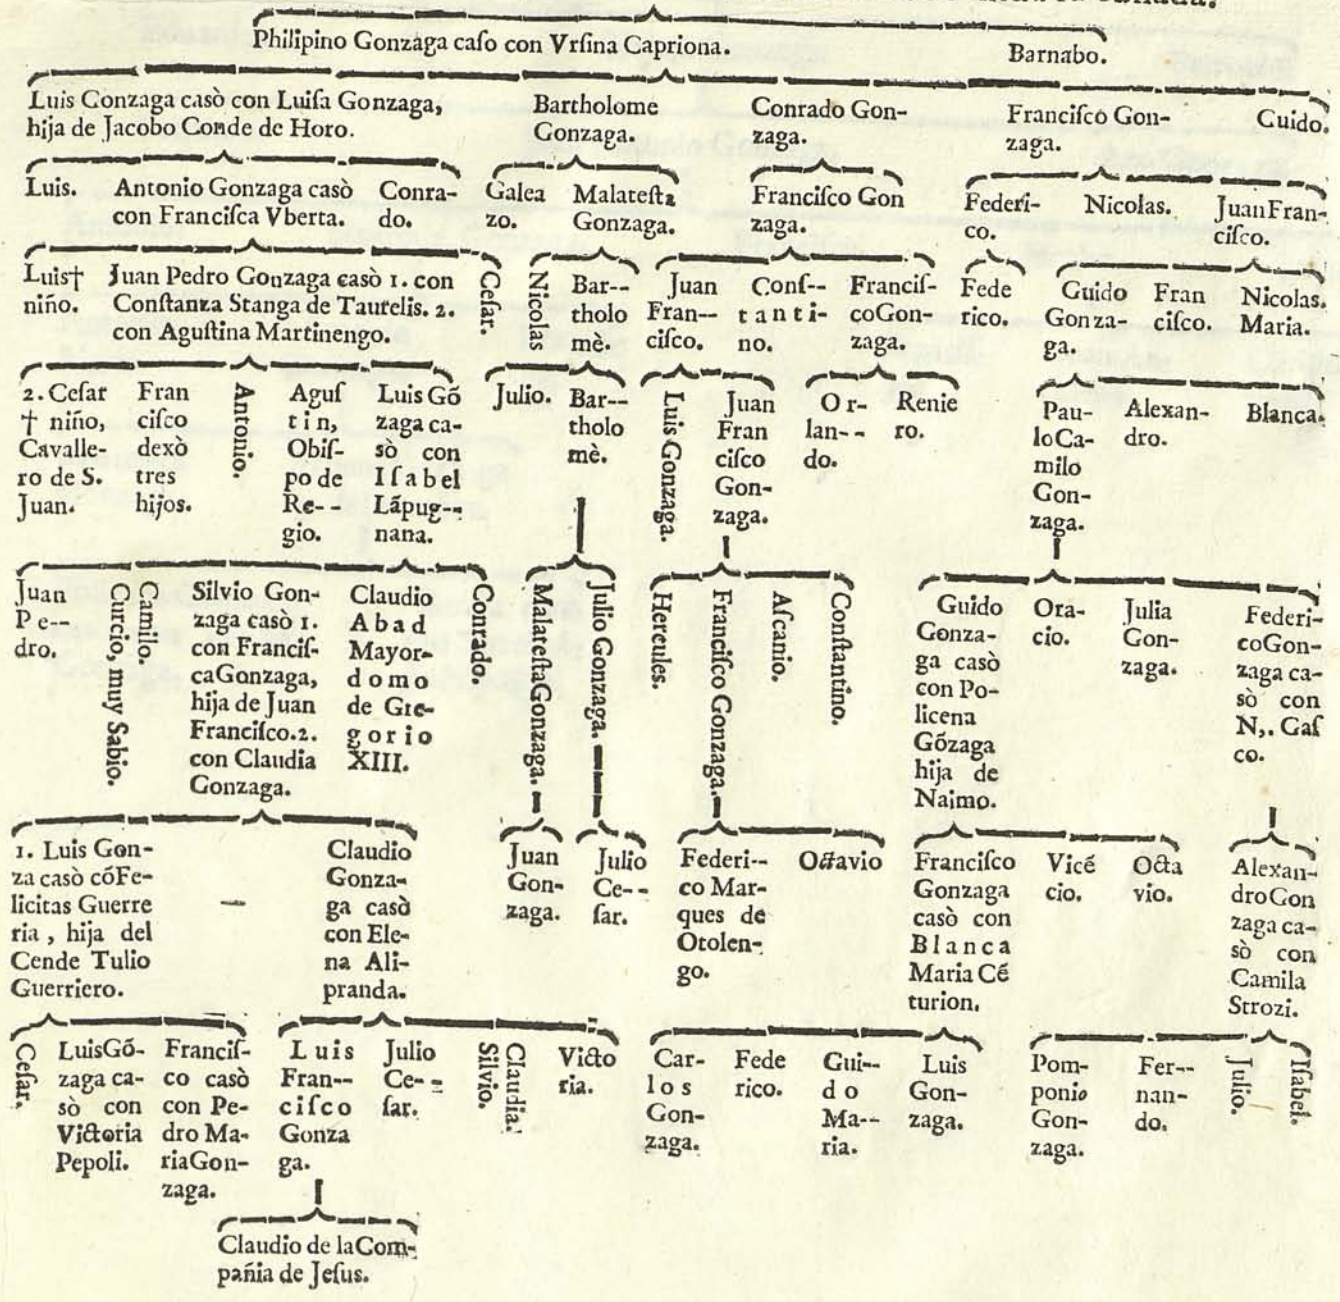 Philipino Gonzaga caſo con Vrſina Capriona.
Barnabo.
Luis Gonzaga casò con Luiſa Gonzaga,
hija de Jacobo Conde de Horo.
Bartholome
Gonzaga.
Conrado Gon-
zaga.
Franciſco Gon-
zaga.
Guido.
Luis.
Antonio Gonzaga casò
con Franciſca Vberta.
Conra-
do.
Galea
zo.
Malateſta
Gonzaga.
Franciſco Gon
zaga.
Federi-
co.
Nicolas.
JuanFran-
ciſco.
Luis†
niño.
Juan Pedro Gonzaga casò 1. con
Conſtanza Stanga de Taurelis. 2.
con Aguſtina Martinengo.
Ceſar.
Nicolas
Bar--
tholo
mè.
Juan
Fran--
ciſco.
Conſ--
tanti-
no.
Franciſ-
coGon-
zaga.
Fede
rico.
Guido
Gonza-
ga.
Fran
ciſco.
Nicolas.
Maria.
2. Ceſar
† niño,
Cavalle-
ro de S.
Juan.
Fran
ciſco
dexò
tres
hijos.
Antonio.
Aguſ
tin,
Obiſ-
po de
Re--
gio.
Luis Gõ
zaga ca-
sò con
Iſabel
Lãpug--
nana.
Julio.
Bar--
tholo
mè.
Luis Gonzaga.
Juan
Fran
ciſco
Gon-
zaga.
Or-
lan--
do.
Renie
ro.
Pau-
loCa-
milo
Gon-
zaga.
Alexan-
dro.
Blanca.
Juan
Pe--
dro.
Camilo.
Curcio, muy Sabio.
Silvio Gon-
zaga casò 1.
con Franciſ-
caGonzaga,
hija de Juan
Franciſco.2.
con Claudia
Gonzaga.
Claudio
Abad
Mayor-
domo
de Gre-
gorio
XIII.
Conrado.
MalateſtaGonzaga.
Julio Gonzaga.
Hercules.
Franciſco Gonzaga.
Aſcanio.
Conſtantino.
Guido
Gonza-
ga casò
con Po-
licena
Gõzaga
hija de
Naimo.
Ora-
cio.
Julia
Gon-
zaga.
Federi-
coGon-
zaga ca-
sò con
N,. Gaſ
co.
1. Luis Gon-
za casò cõFe-
licitas Guerre
ria, hija del
Cende Tulio
Guerriero.
Claudio
Gonza-
ga casò
con Ele-
na Ali-
pranda.
Juan
Gon-
zaga.
Julio
Ce--
ſar.
Federi--
co Mar-
ques de
Otolen-
go.
Octavio
Franciſco
Gonzaga
casò con
Blanca
Maria Cẽ
turion.
Vicẽ
cio.
Octa
vio.
Alexan-
droGon
zaga ca-
sò con
Camila
Strozi.
Ceſar.
LuisGõ-
zaga ca-
sò con
Victoria
Pepoli.
Franciſ-
co casò
con Pe-
dro Ma-
riaGon-
zaga.
Luis
Fran--
ciſco
Gonza
ga.
Julio
Ce--
ſar.
Claudia.
Silvio.
Victo
ria.
Car-
los
Gon-
zaga.
Fede
rico.
Gui--
do
Ma--
ria.
Luis
Gon-
zaga.
Pom-
ponio
Gon-
zaga.
Fer--
nan-
do.
Julio.
Iſabel.
Claudio de laCom-
pañia de Jeſus.